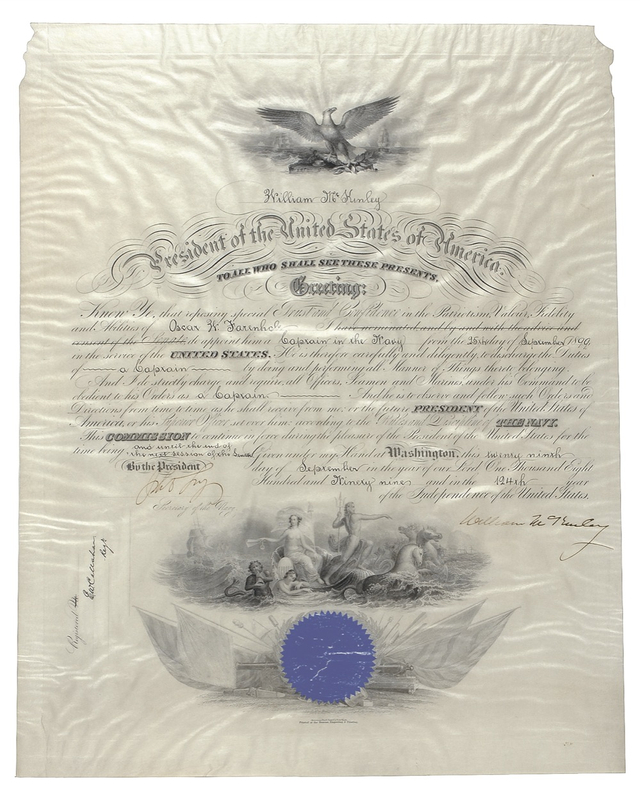 William McKinley
President of the United States of America.
TO ALL WHO SHALL SEE THESE PRESENTS,
Greeting:
Know Ye, that reposing special Trust and Confidence in the Patriotism, Valour, Fidelity
and Abilities of Oscar W. Farenholt I have nominated and by and with the advice and
consent of the Senate do appoint him a Captain in the Navy from the 25th day of September 1899
in the service of the UNITED STATES. He is therefore carefully and diligently to discharge the Duties
of a Captain by doing and performing all Manner of Things thereto belonging.
And I do strictly charge and require all Officers, Seamen and Marines under his Command to be
obedient to his Orders as a Captain And he is to observe and follow such Orders and
Directions from time to time as he shall receive from me, or the future PRESIDENT of the United States of
America, or his Superior Officer set over him, according to the Rules and Discipline of THE NAVY.
This COMMISSION to continue in force during the pleasure of the President of the United States for the
time being and until the end of
the next session of the Senate Given under my Hand at Washington, this twenty ninth
By the President day of September in the year of our Lord One Thousand Eight
Hundred and Ninety nine and in the 124th year
Secretary of the Navy of the Independence of the United States.
William McKinley
Registered